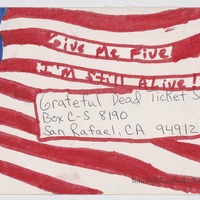 Give Me Five
I'm Still Alive!
Grateful Dead Ticket S
Box C-S 8190
San Rafael, CA 94912